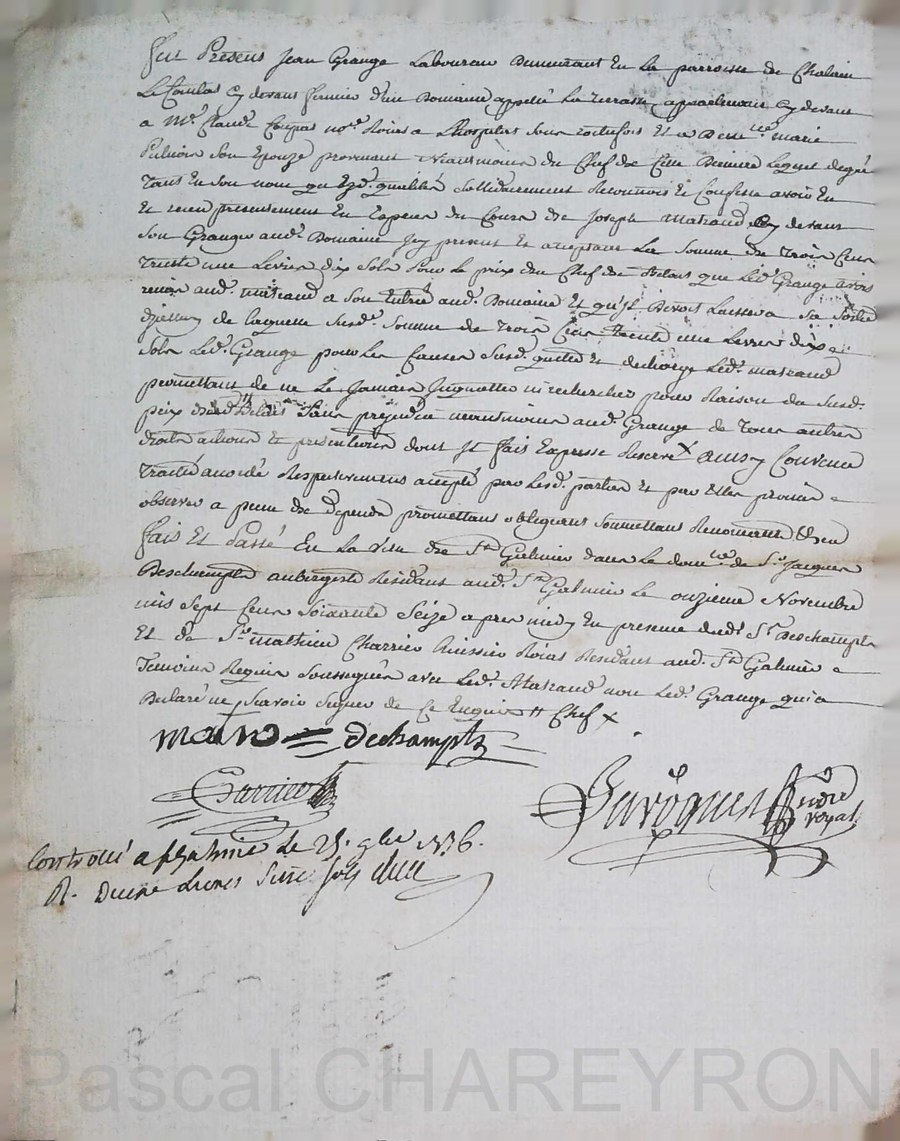 fut Present Jean Grange Laboureur Demeurant En la parroisse de Chalain
Le Comtal cy devant fermier d'un Domaine appellé La terrasse appartenant cy devant
a Me. Claude no.re Roial a Lhospital sous rochefort Et a Delle. marie
son Epouze provenant neantmoins du Chef de Cette Derniere Lequel de gré
tant En son nom qu' solidairement Reconnois Et Confesse avoir Eu
Et receu presentement En Especes du Cours de Joseph Matraud cy devant
son Granger aud. Domaine Icy present Et acceptant La somme de trois Cent
trente une Livres dix sols pour le prix du Chef de que Led. Grange avoit
remis aud. matraud a son Entrée aud. Domaine Et qu'il Devoit Laisser a sa sortie
de laquelle susd. somme de trois Cent trente une Livres dix
sols Led. Grange pour les Causes susd. quitte Et decharge Led. matraud
promettant de ne Le Jamais Inquietter ni rechercher pour Raison du susd.
prix sans prejudice neantmoins aud. Grange de tous autres
droits actions Et pretentions dont Il fait Expresse Reserve x ainsy Convenu
traitté accordé Respectivement accepté par Lesd. parties Et par Elles promis
observer a peine de depends promettant obligeant soumettant Renonceant &
fait Et passé En la ville de St. Galmier dans Le domlle. de Sr. Jacques
Deschampts aubergiste Residant aud. St. Galmier Le onzieme Novembre
mil sept Cent soixante seize apres midy En presence dud. Sr. Deschampts
Et de Sr. mathieu Charrier huissier Roial Residant aud. St. Galmier
temoins Requis soussignés avec Led. Matraud non Led. Grange qui a
Declaré ne scavoir signer de Ce Enquis // Chef x
matro dechampts
Charrier
royal
Controllé a St galmier le 25. 9bre 1776.
R. Douze livres sols
Pascal CHAREYRON